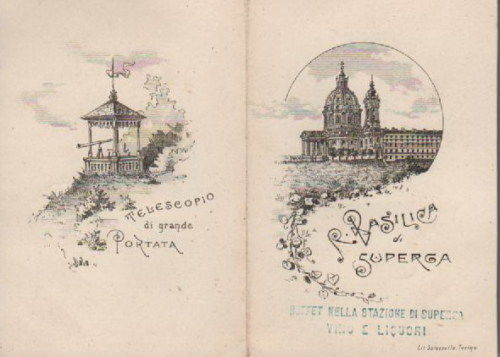 TELESCOPIO
di grande
PORTATA
R. BASILICA
di
SUPERGA
BUFFET NELLA STAZIONE DI SUPERGA
VINO E LIQUORI
Lit. Salussolia. Torino